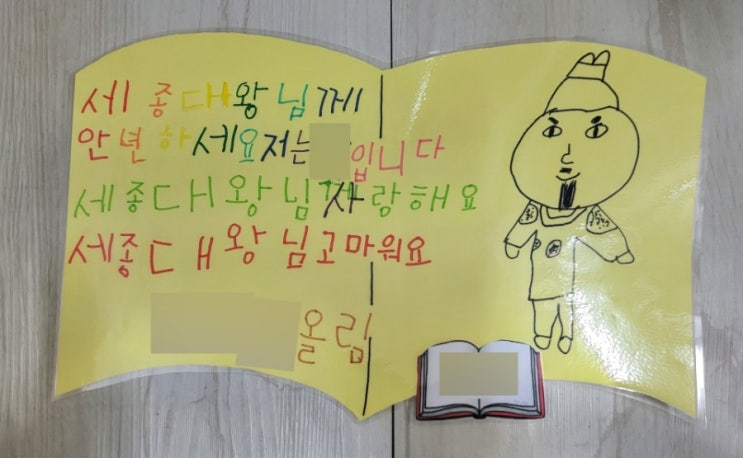 세종대왕님께
안년하세요저는 입니다
세종대왕님사랑해요
세종대왕님고마워요
올림